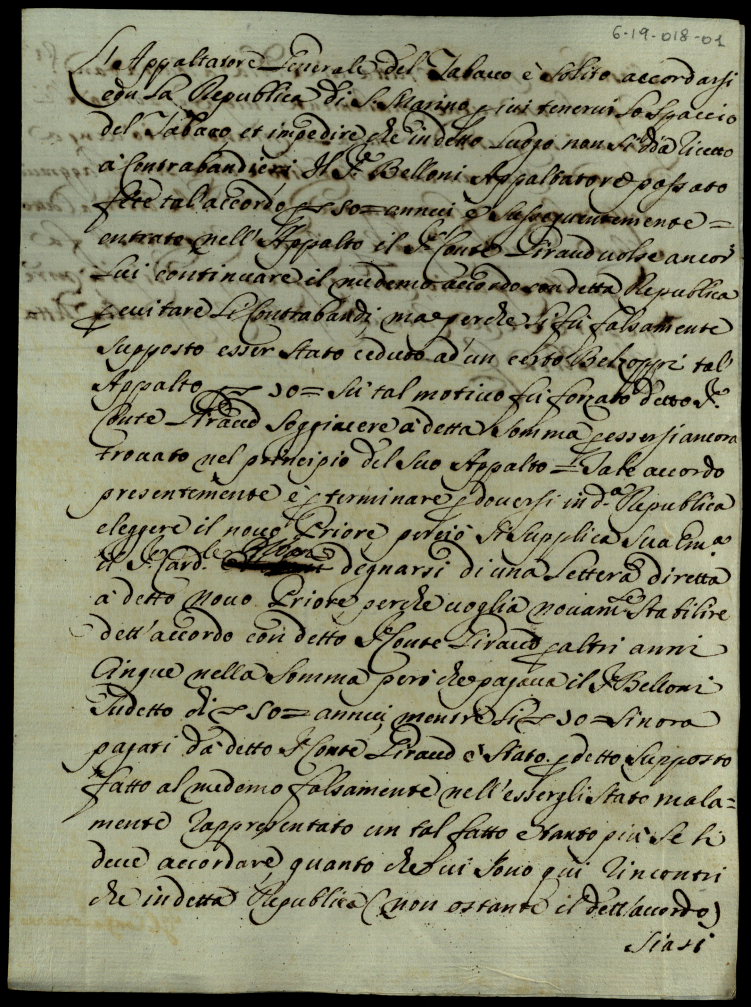 6-19-018-01
L'Appaltatore Generale del Tabacco è solito accordarsi
con La Republica di S. Marino p ivi tenervi Lo Spaccio
del Tabaco, et impedire che in detto Luogo non si dia ricetto
à Contrabandieri. Il Sr. Belloni Appaltatore passato
fece tal' accordo p 50= annui e susseguentemente =
entrato nell' Appalto il Sr. Conte Giraud volse ancor
Lui continuare il medemo accordo con detta Republica
p evitare Li Contrabandi, ma perche si fù falsamente
supposto esser stato ceduto ad' un certo Belzoppi tal'
Appalto p 70= sù tal motivo fù forzato detto Sr.
Conte Giraud soggiacere à detta somma p essersi ancora
trovato nel principio del suo Appalto = Tale accordo
presentemente è p terminare p doversi in d.a Republica
eleggere il novo Priore perciò si supplica Sua Em.a
il Sr. Card. degnarsi di una Lettera diretta
à detto novo Priore perche voglia novam.te stabilire
dett' accordo con detto Sr. Conte Giraud p altri anni
Cinque nella somma però che pagava il Sr. Belloni
sudetto di 50= annui, mentre li 70= sinora
pagati dà detto Sr. Conte Giraud è stato p detto supposto
fatto al medemo falsamente nell' essergli stato mala=
mente rappresentato un tal fatto e tanto più se li
deve accordare quanto che vi sono più rincontri
che in detta Republica (non ostante il dett' accordo)
siasi